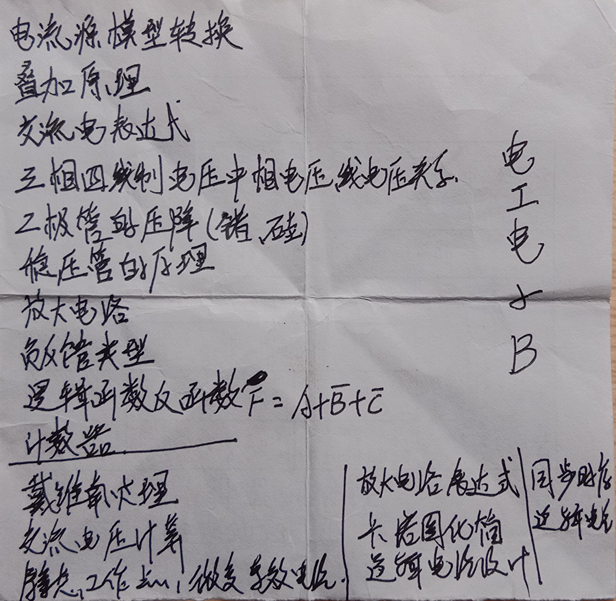 电流源模型转换
叠加原理
交流电表达式
三相四线制电压中相电压,线电压关系.
二极管的压降(锗,硅)
稳压管的原理
放大电路
负反馈类型
逻辑函数反函数 F = A+B̅+C̅
计数器
戴维南定理
交流电压计算
静态工作点,微变等效电路.
放大电路表达式
卡诺图化简
逻辑电路设计
同步时序
逻辑电路
电
工
电
子
B